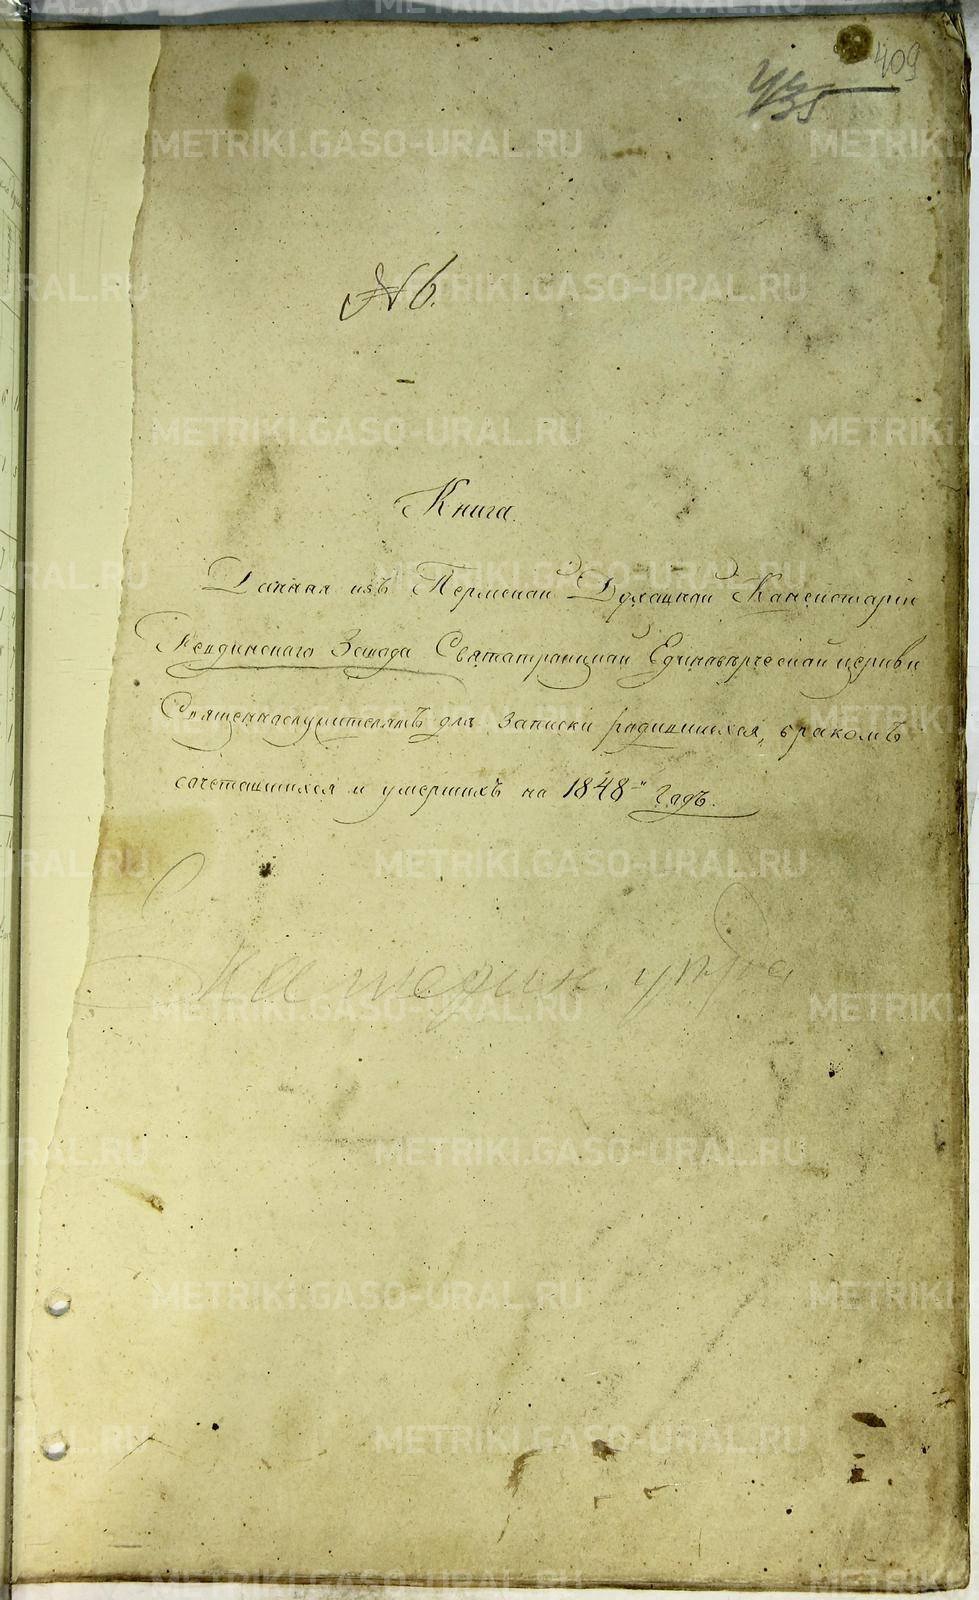 409
435
№ 6.
Книга.
Данная изъ Пермской Духовной Консисторіи
Ревдинскаго Завода Святотроицкой Единоверческой церкви
Священнослужителямъ для записки родившихся, бракомъ
сочетавшихся и умершихъ на 1848й годъ.
METRIKI.GASO-URAL.RU